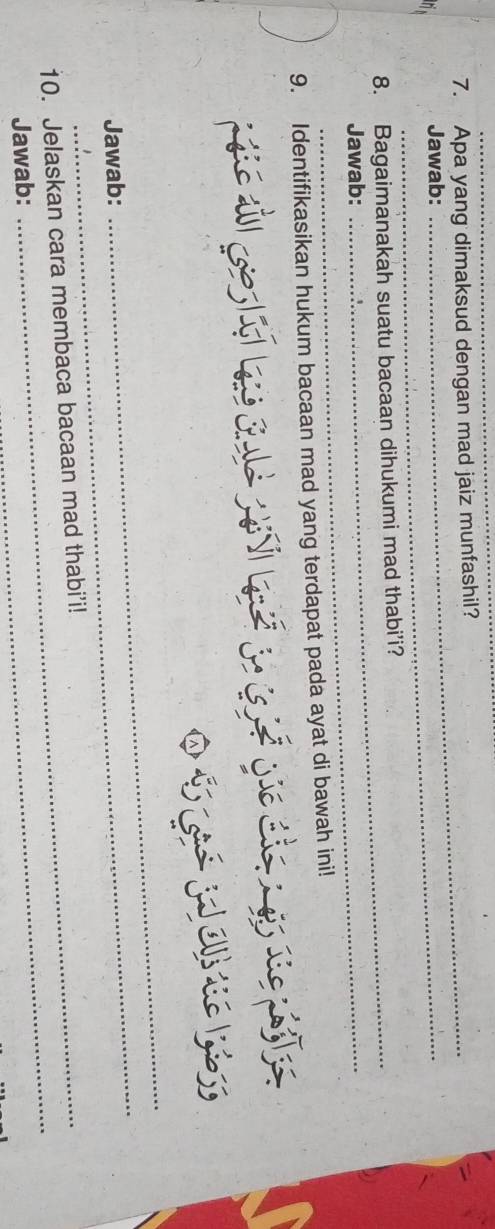 7. Apa yang dimaksud dengan mad jaiz munfashil?
Jawab:
8. Bagaimanakah suatu bacaan dihukumi mad thabi'i?
Jawab:
9. Identifikasikan hukum bacaan mad yang terdapat pada ayat di bawah ini!
جَزَآؤُهُمْ عِنْدَ رَبِّهِمْ جَنّٰتُ عَدْنٍ تَجْرِيْ مِنْ تَحْتِهَا الْاَنْهٰرُ خٰلِدِيْنَ فِيْهَآ اَبَدًا ۗرَضِيَ اللّٰهُ عَنْهُمْ
وَرَضُوْا عَنْهُ ۗذٰلِكَ لِمَنْ خَشِيَ رَبَّهٗ ﴿٨﴾
Jawab:
10. Jelaskan cara membaca bacaan mad thabi'i!
Jawab: